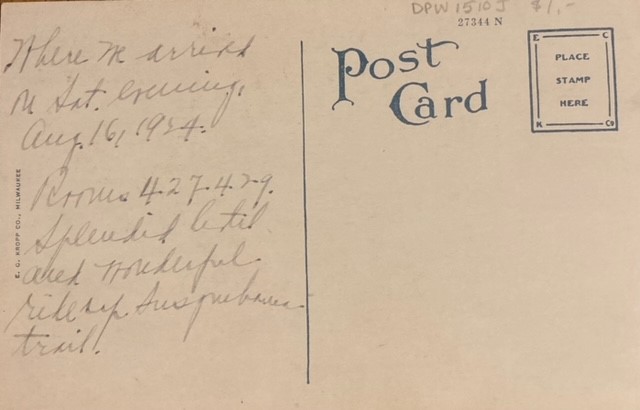 DPW1510J $1,-
27344 N
Post
Card
E C
PLACE
STAMP
HERE
K Co
E. C. KROPP CO., MILWAUKEE
Where we arrived
on Sat. evening,
Aug. 16, 1924.
Rooms 427-429.
Splendid hotel
and wonderful
ride up Susquehanna
trail.